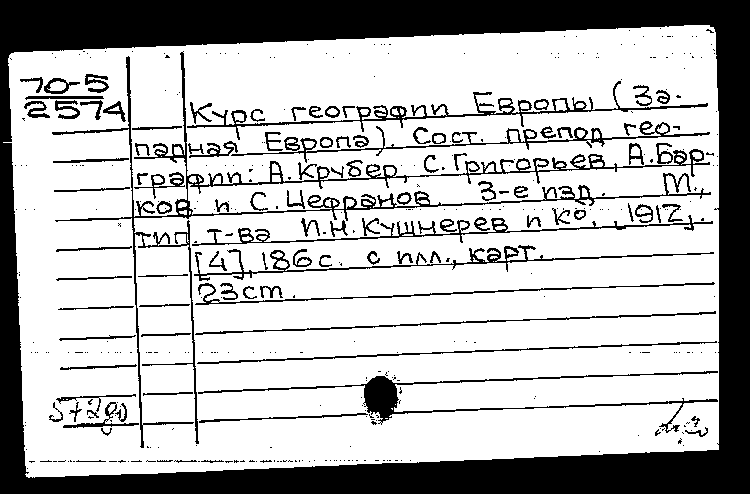 70-5
2574
Курс географии Европы (За-
падная Европа). Сост. препод. гео-
графии: А. Крубер, С. Григорьев, А. Бар-
ков и С. Чефранов. 3-е изд. М.,
тип. т-ва И.Н. Кушнерев и К°, [1912].
[4], 186 с. с илл., карт.
23 см.